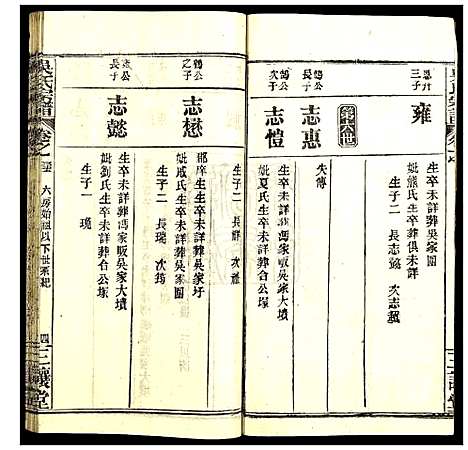 雍
生卒未詳葬吳家園
妣熊氏生卒葬俱未詳
生子二 長志懿
第十六世
鶴公長子
志惠
失傳
鶴公次子
志愷
生卒未詳葬馮家販吳家大墳
妣夏氏生卒未詳葬台公塚
生子二 長 次
鶴公之子
志懋
邵庠生生卒未詳葬吳家圩
妣戚氏生卒未詳葬吳家園
生子二 長瑞 次筠
公長子
志懿
生卒未詳葬馮家販吳家大墳
妣劉氏生卒未詳葬台公塚
生子一 璄
吳氏宗譜
六房始祖以下世系紀
四
三讓堂